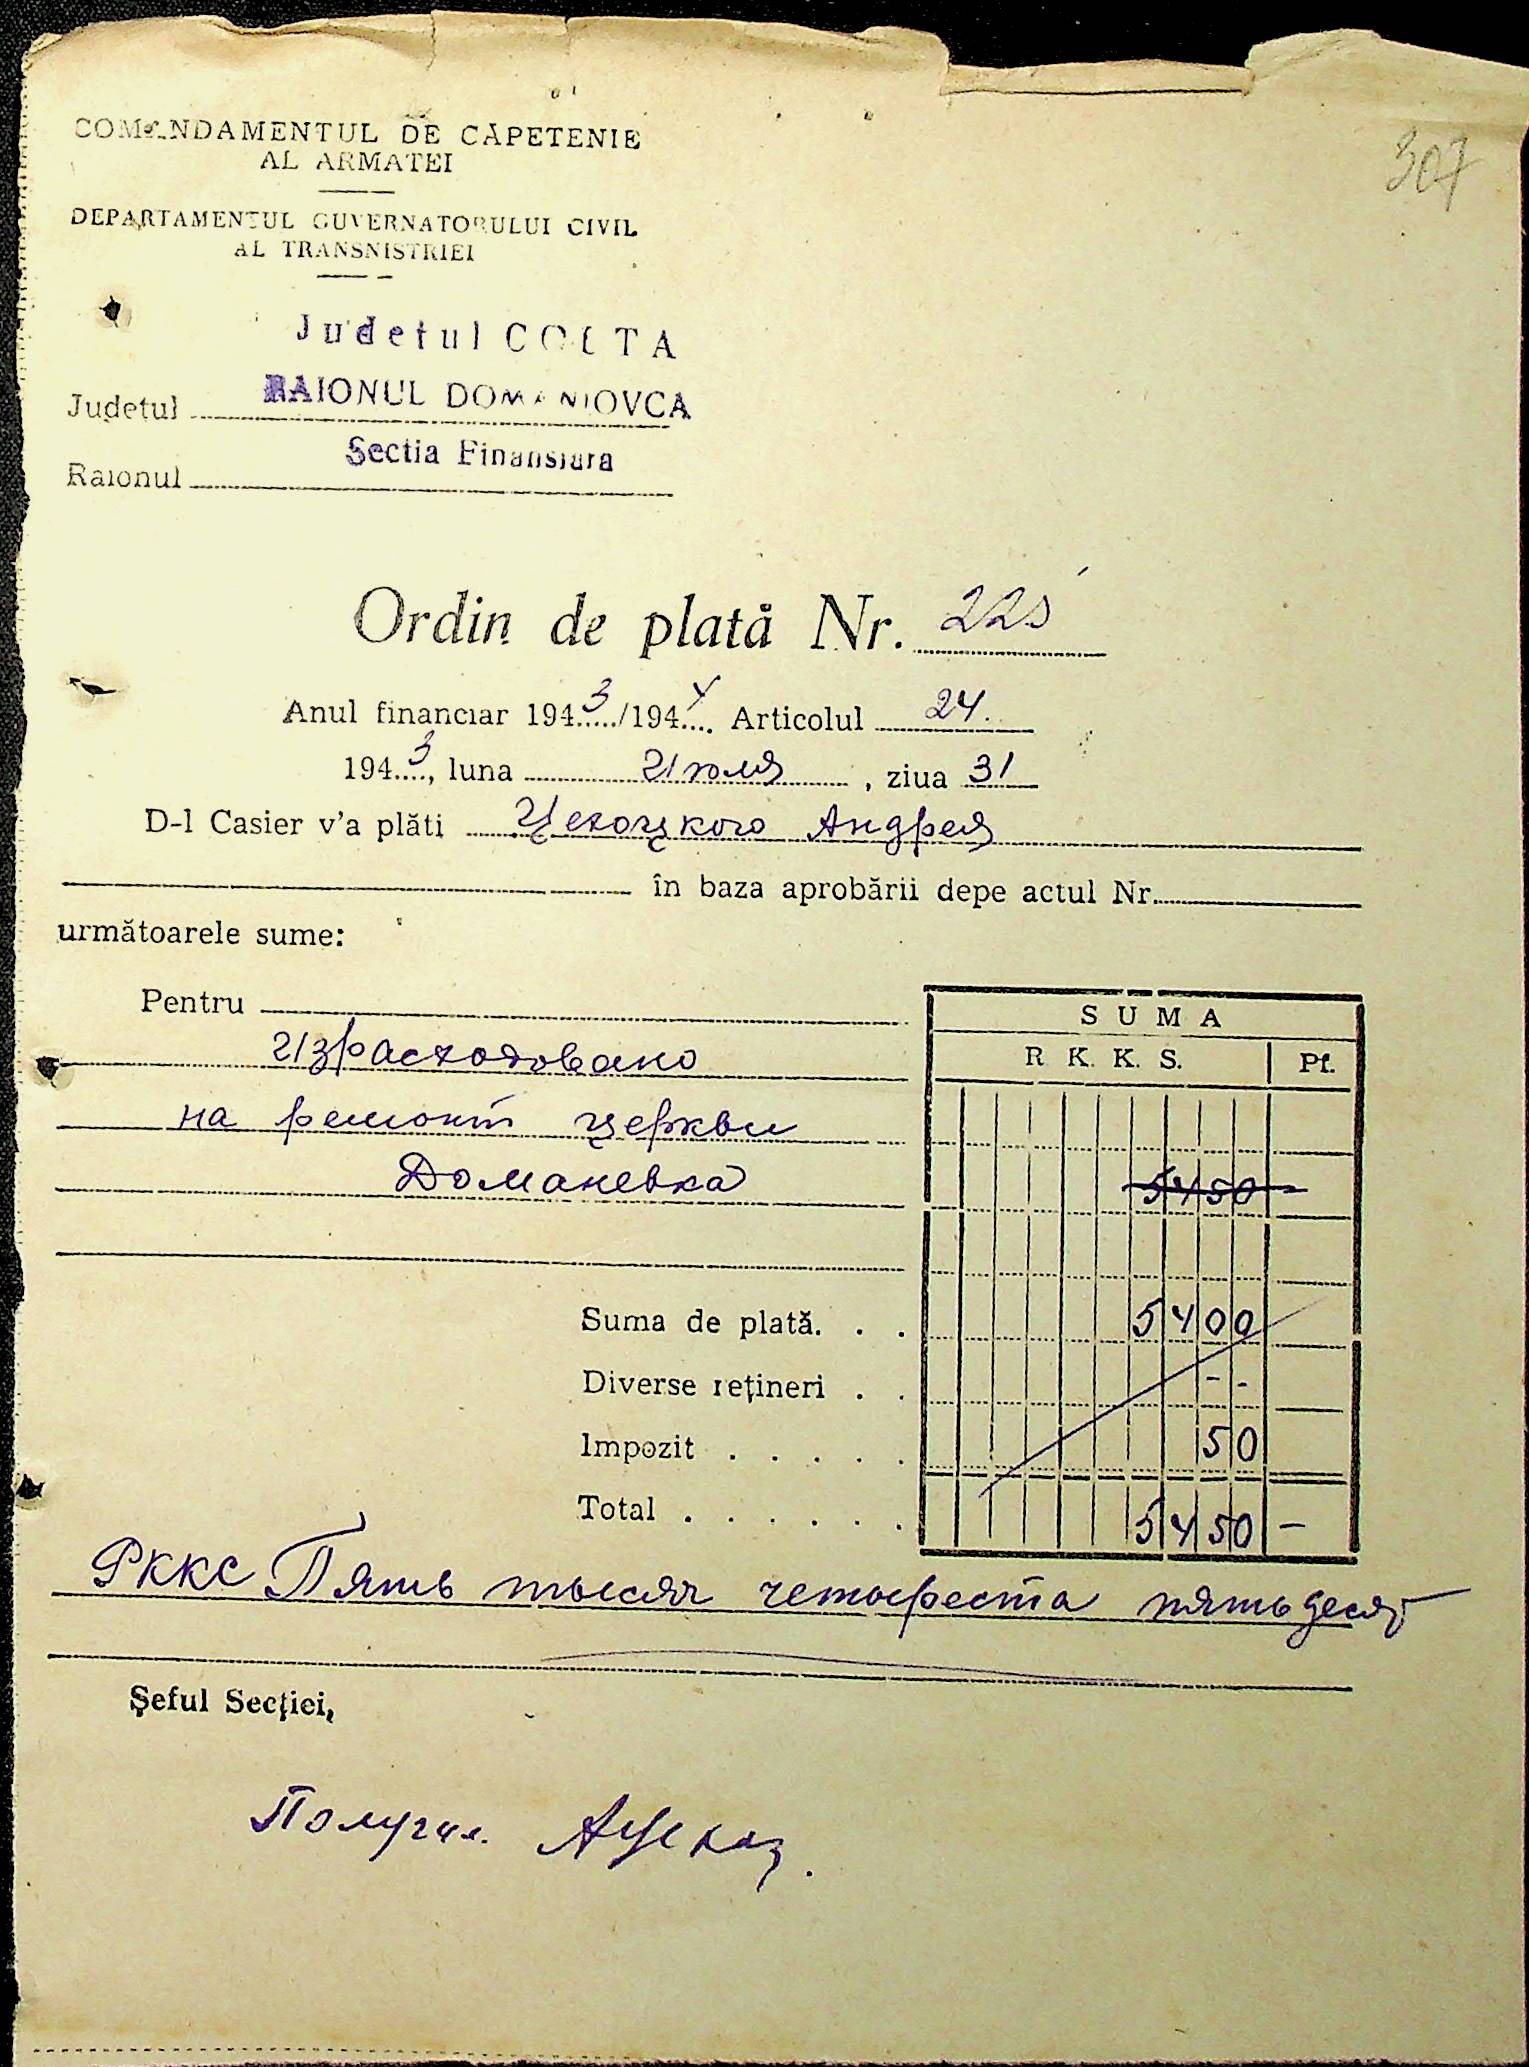 307
COMANDAMENTUL DE CĂPETENIE
AL ARMATEI
DEPARTAMENTUL GUVERNATORULUI CIVIL
AL TRANSNISTRIEI
Judetul COLTA
Judeţul RAIONUL DOMANIOVCA
Sectia Finansiara
Raionul
Ordin de plată Nr. 225
Anul financiar 1943/1944 Articolul 24.
1943, luna Июля, ziua 31
D-l Casier v'a plăti Цехоцкого Андрея
în baza aprobării depe actul Nr.
următoarele sume:
Pentru
SUMA
R.K.K.S. Pf.
Израсходовано
на ремонт церкви
Доманевка 5450 -
Suma de plată. . . 5400
Diverse reţineri . . - -
Impozit . . . . . 50
Total . . . . . . 5450 -
РККС Пять тысяч четыреста пятьдесят
Şeful Secţiei,
Получил.